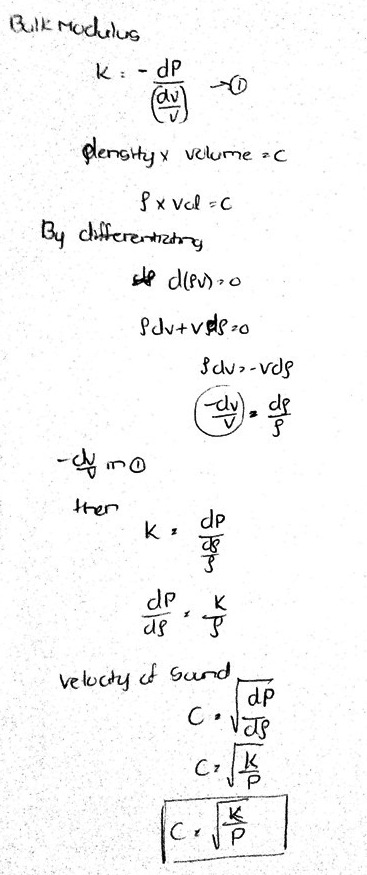 Bulk Modulus
K = - dP / (dv/v) → ①
density x volume = C
ρ x vol = C
By differentiating
d(ρv) = 0
ρdv + vdρ = 0
ρdv = -vdρ
-dv/v = dρ/ρ
-dv/v in ①
then
K = dP / (dρ/ρ)
dP/dρ = K/ρ
velocity of sound
C = √(dP/dρ)
C = √(K/P)
C = √(K/P)